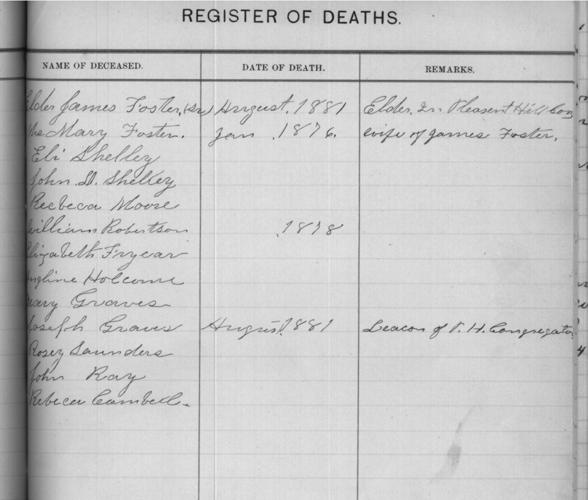 REGISTER OF DEATHS.
NAME OF DECEASED. DATE OF DEATH. REMARKS.
Elder James Foster, (Sr) August. 1881 Elder. In Pleasent Hill Cong
Mary Foster. Jan . 1876. wife of James Foster.
Eli Shelley
John D. Shelley
Recbeca Moore
William Robertson .1878
Elizabeth Fryear
Holcome
Mary Graves
Joseph Graves August. 1881 Deacon of P. H. Congregation
Rosey Saunders
John Ray
Rebeca Cambell.